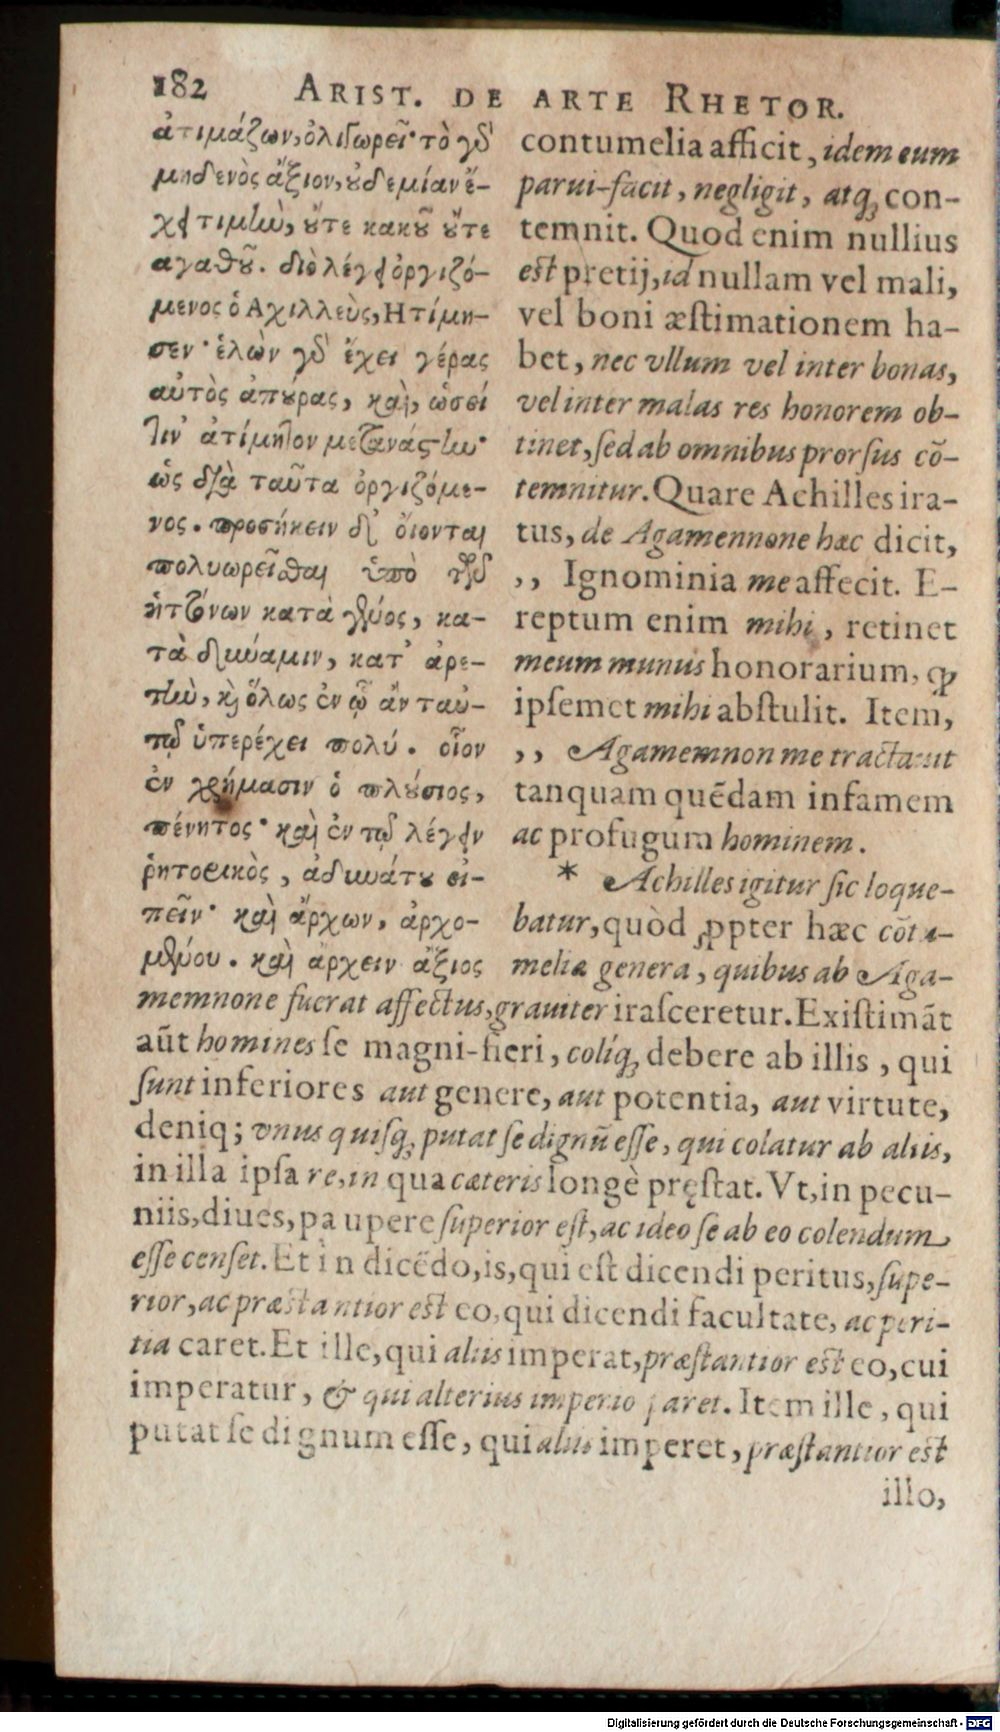 182 ARIST. DE ARTE RHETOR.
ἀτιμάζων, ὀλιγωρεῖ· τὸ γδ
μηδενὸς ἄξιον, ȣδεμίαν ἔ-
χει τιμὴν, ȣ̓́τε κακȣ͂ ȣ̓́τε
αγαθȣ͂. διὸ λέγει ὀργιζό-
μενος ὁ Αχιλλεὺς, Ητίμη-
σεν· ἑλὼν γδ ἔχει γέρας
αὐτὸς ἀπȣ́ρας, καὶ, ὡσεί
τιν' ἀτίμητον μετανάστην·
ὡς διὰ ταῦτα ὀργιζόμε-
νος. προσήκειν δ' ὄιονται
πολυωρεῖσθαι ὑπὸ τῶν
ἡττόνων κατὰ γένος, κα-
τὰ δύναμιν, κατ' ἀρε-
τὴν, κỳ ὅλως ἐν ᾧ ἂν ταὐ-
τῷ ὑπερέχει πολύ. οἷον
ἐν χρήμασιν ὁ πλȣ́σιος,
πένητος· καὶ ἐν τῷ λέγειν
ῥητορικὸς, ἀδυνάτȣ εἰ-
πεῖν· καὶ ἄρχων, ἀρχο-
μένου. καὶ ἄρχειν ἄξιος
contumelia afficit, idem eum
parui-facit, negligit, atq; con-
temnit. Quod enim nullius
est pretij, id nullam vel mali,
vel boni æstimationem ha-
bet, nec vllum vel inter bonas,
vel inter malas res honorem ob-
tinet, sed ab omnibus prorsus cō-
temnitur. Quare Achilles ira-
tus, de Agamennone hæc dicit,
,, Ignominia me affecit. E-
reptum enim mihi, retinet
meum munus honorarium, ꝙ
ipsemet mihi abstulit. Item,
,, Agamemnon me tractauit
tanquam quēdam infamem
ac profugum hominem.
* Achilles igitur sic loque-
batur, quòd ꝓpter hæc cōtu-
meliæ genera, quibus ab Aga-
memnone fuerat affectus, grauiter irasceretur. Existimāt
aūt homines se magni-fieri, colíq; debere ab illis, qui
sunt inferiores aut genere, aut potentia, aut virtute,
deniq; vnus quisq; putat se dignū esse, qui colatur ab aliis,
in illa ipsa re, in qua cæteris longè pręstat. Vt, in pecu-
niis, diues, paupere superior est, ac ideo se ab eo colendum
esse censet. Et in dicēdo, is, qui est dicendi peritus, supe-
rior, ac præstantior est eo, qui dicendi facultate, ac peri-
tia caret. Et ille, qui aliis imperat, præstantior est eo, cui
imperatur, & qui alterius imperio paret. Item ille, qui
putat se dignum esse, qui aliis imperet, præstantior est
illo,
Digitalisierung gefördert durch die Deutsche Forschungsgemeinschaft - DFG